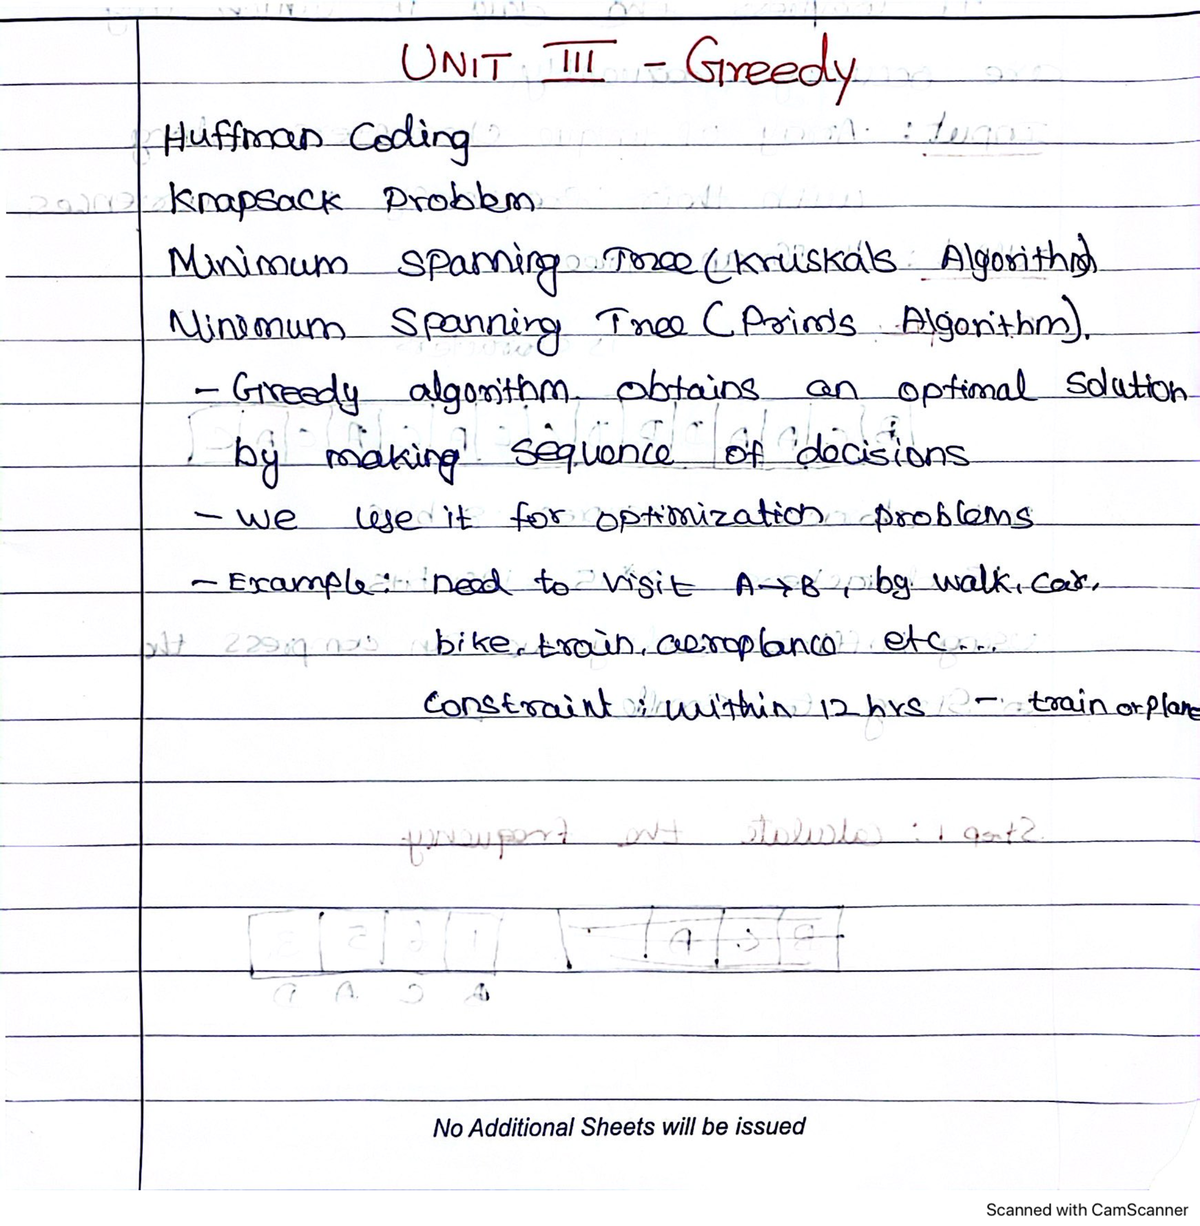 UNIT III - Greedy
Huffman Coding
Knapsack Problem
Minimum Spanning Tree (Kruskal's Algorithm)
Minimum Spanning Tree (Prim's Algorithm).
- Greedy algorithm obtains an optimal solution
by making sequence of decisions
- We use it for optimization problems
- Example: need to visit A→B, by walk, car,
bike, train, aeroplance etc...
Constraint : within 12 hrs - train or plane
Step 1: calculate the frequency
No Additional Sheets will be issued
Scanned with CamScanner